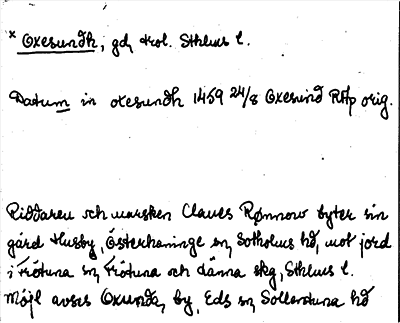 * Oxesundh, gd, trol. Sthlms l.
Datum in oxesundh 1459 24/8 Oxesund RAp orig.
Riddaren och marsken Claues Rønnow byter sin
gård Husby, Österhaninge sn, Sotholms hd, mot jord
i Frötuna sn, Frötuna och Länna skg, Sthlms l.
Möjl avses Oxunda, by, Eds sn, Sollentuna hd